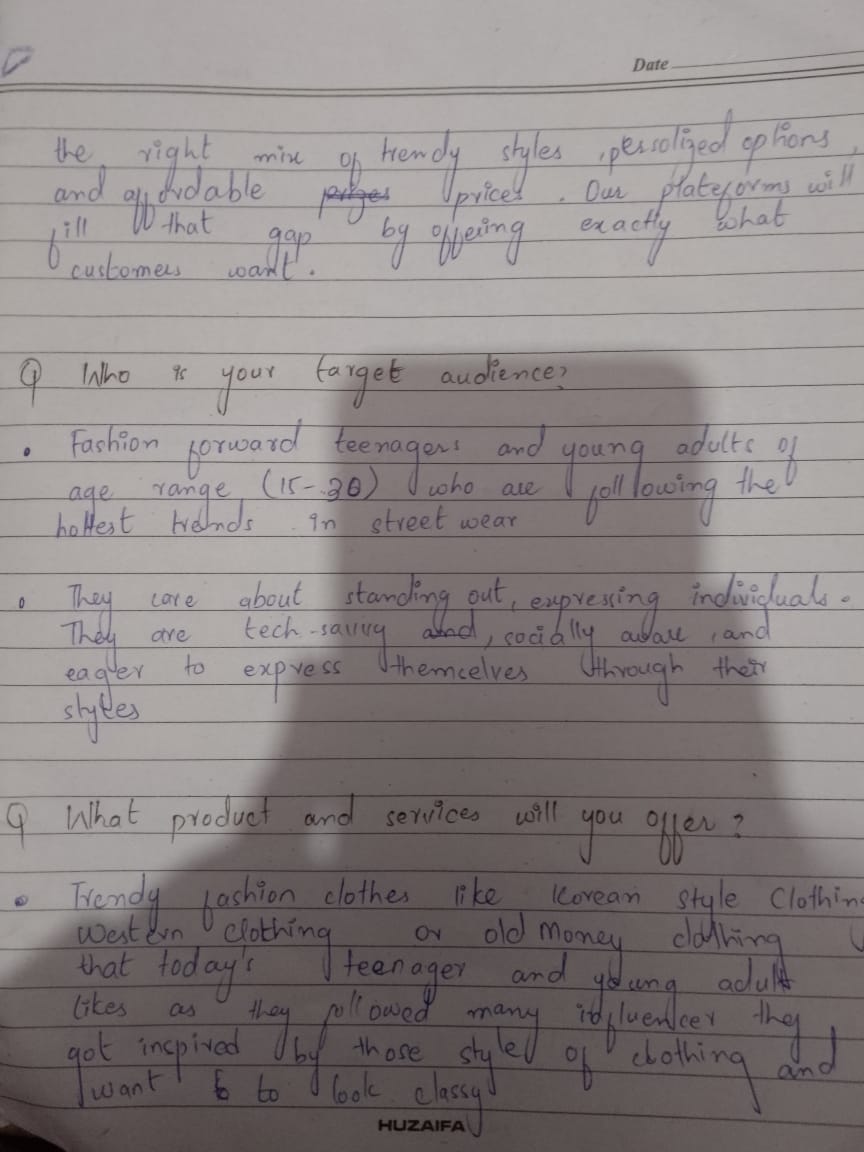 Date
the right mix of trendy styles, persolized options,
and affordable prices. Our plateforms will
fill that gap by offering exactly what
customers want.
Q Who is your target audience?
• Fashion forward teenagers and young adults of
age range (15-30) who are following the
hottest trends in street wear
• They care about standing out, expressing individuals.
They are tech-savvy and, socially aware, and
eager to express themcelves through their
styles
Q What product and services will you offer?
• Trendy fashion clothes like Korean style Clothing
Western clothing or old money clothing
that today's teenager and young adult
likes as they followed many influencer they
got incpired by those style of clothing and
want to look classy
HUZAIFA